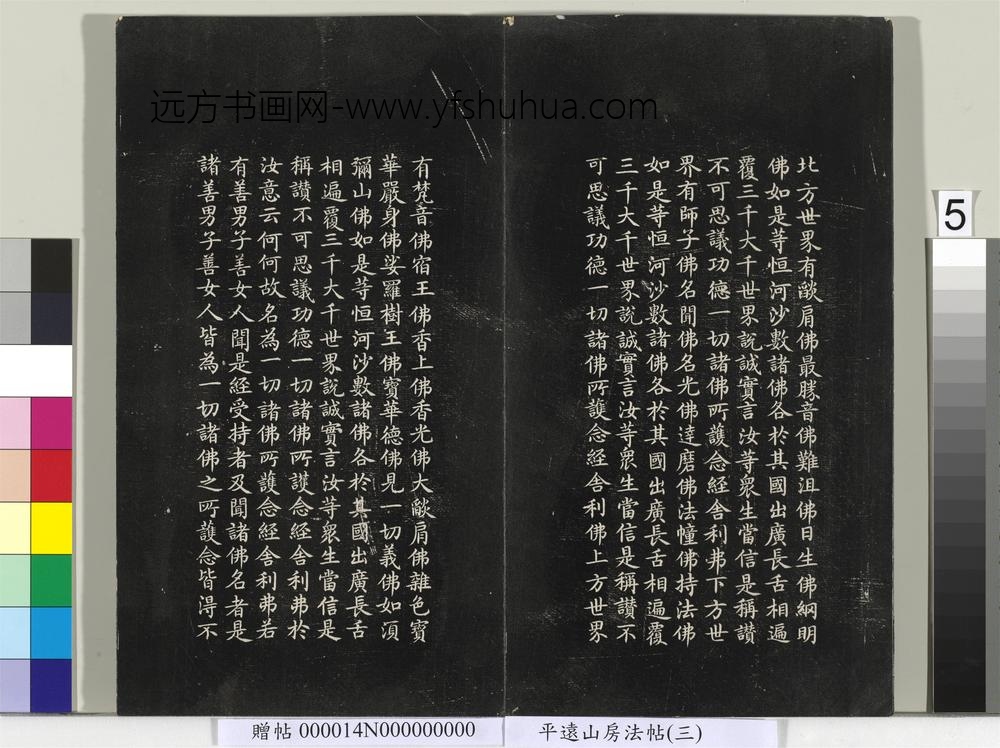 远方书画网-www.yfshuhua.com
北方世界有㷿肩佛最勝音佛難沮佛日生佛網明
佛如是等恒河沙數諸佛各於其國出廣長舌相遍
覆三千大千世界說誠實言汝等衆生當信是稱讚
不可思議功德一切諸佛所護念經舍利弗下方世
界有師子佛名聞佛名光佛達磨佛法幢佛持法佛
如是等恒河沙數諸佛各於其國出廣長舌相遍覆
三千大千世界說誠實言汝等衆生當信是稱讚不
可思議功德一切諸佛所護念經舍利佛上方世界
有梵音佛宿王佛香上佛香光佛大㷿肩佛雜色寶
華嚴身佛娑羅樹王佛寶華德佛見一切義佛如湏
彌山佛如是等恒河沙數諸佛各於其國出廣長舌
相遍覆三千大千世界說誠實言汝等衆生當信是
稱讚不可思議功德一切諸佛所護念經舍利弗於
汝意云何何故名為一切諸佛所護念經舍利弗若
有善男子善女人聞是經受持者及聞諸佛名者是
諸善男子善女人皆為一切諸佛之所護念皆淂不
5
贈帖 000014N000000000
平遠山房法帖(三)